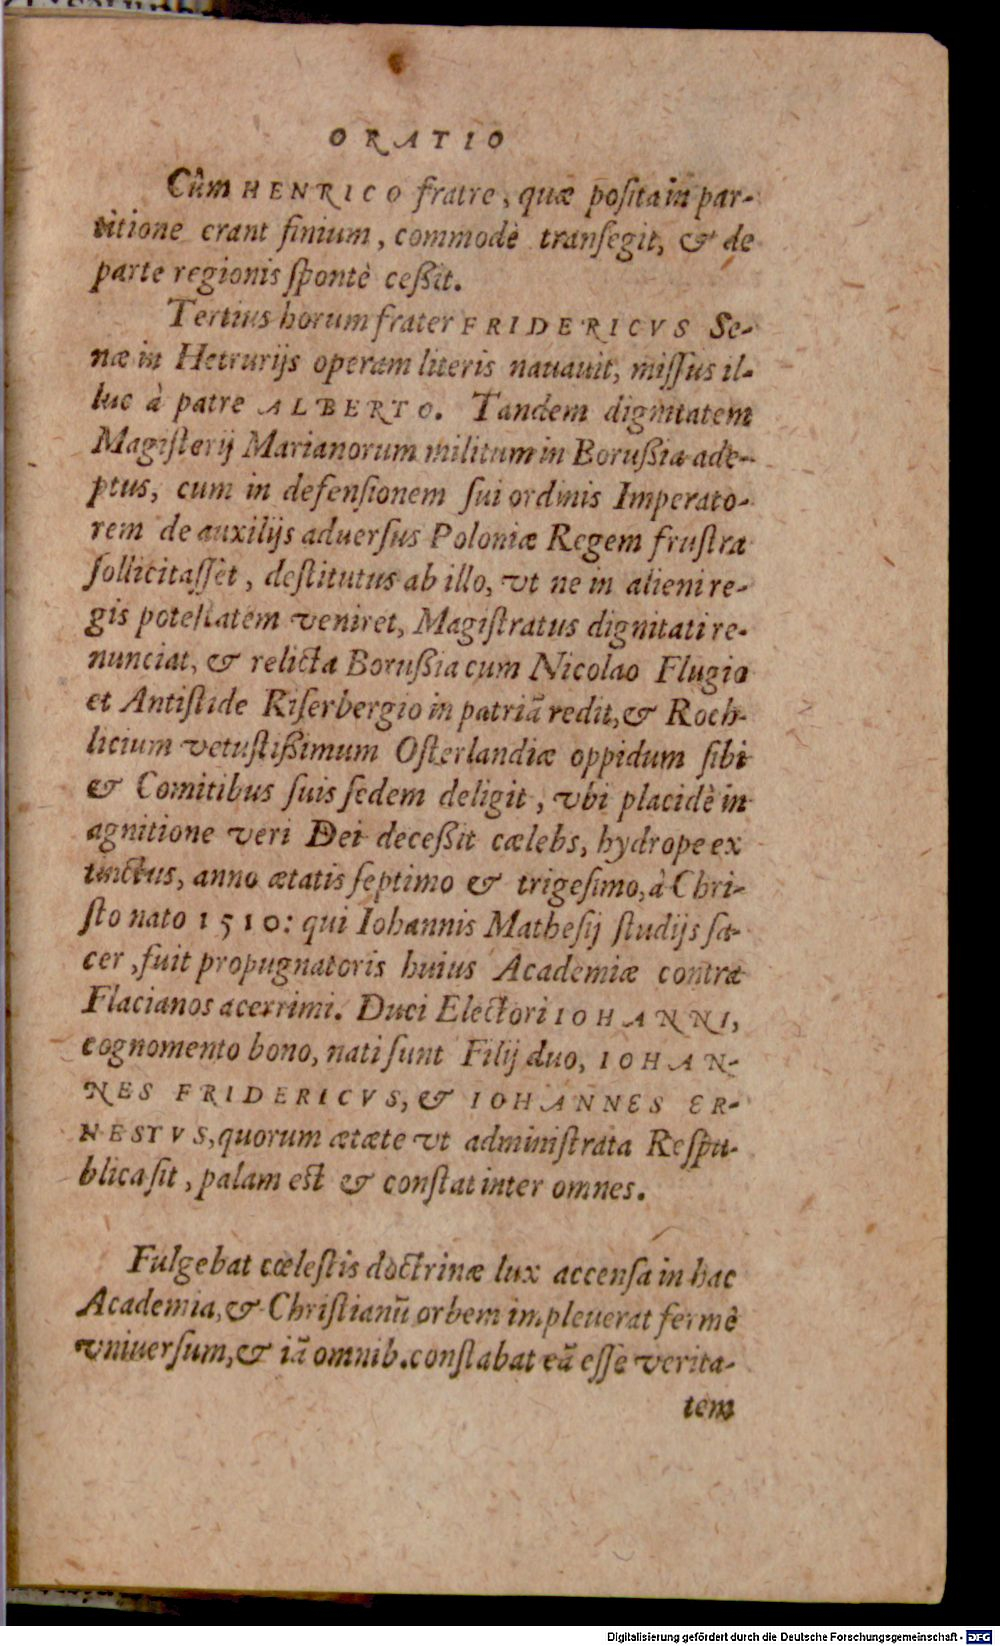 ORATIO
Cùm HENRICO fratre, quæ posita in par-
titione erant finium, commodè transegit, & de
parte regionis spontè ceßit.
Tertius horum frater FRIDERICVS Se-
næ in Hetrurijs operam literis nauauit, missus il-
luc à patre ALBERTO. Tandem dignitatem
Magisterij Marianorum militum in Borußia ade-
ptus, cum in defensionem sui ordinis Imperato-
rem de auxilijs aduersus Poloniæ Regem frustra
sollicitasset, destitutus ab illo, vt ne in alieni re-
gis potestatem veniret, Magistratus dignitati re-
nunciat, & relicta Borußia cum Nicolao Flugio
et Antistide Riserbergio in patriã redit, & Roch-
licium vetustißimum Osterlandiæ oppidum sibi
& Comitibus suis sedem deligit, vbi placidè in
agnitione veri Dei deceßit cælebs, hydrope ex
tinctus, anno ætatis septimo & trigesimo, à Chri-
sto nato 1510: qui Iohannis Mathesij studijs sa-
cer, fuit propugnatoris huius Academiæ contra
Flacianos acerrimi. Duci Electori IOHANNI,
cognomento bono, nati sunt Filij duo, IOHAN-
NES FRIDERICVS, & IOHANNES ER-
NESTVS, quorum ætæte vt administrata Respu-
blica sit, palam est & constat inter omnes.
Fulgebat cœlestis doctrinæ lux accensa in hac
Academia, & Christianũ orbem impleuerat fermè
vniuersum, & iã omnib. constabat eã esse verita-
tem
Digitalisierung gefördert durch die Deutsche Forschungsgemeinschaft - DFG